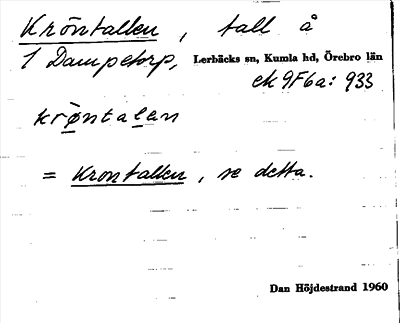 Kröntallen, tall å
1 Dampetorp, Lerbäcks sn, Kumla hd, Örebro län
ek 9F6a: 933
krøntalen
= Krontallen, se detta.
Dan Höjdestrand 1960